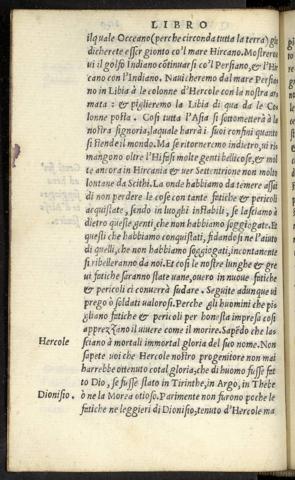 LIBRO
ilquale Occeano (perche circonda tutta la terra) giu
dicherete esser gionto co'l mare Hircano. Mostrerò
ui il golfo Indiano cōtinuarsi co'l Persiano, & l'Hir
cano con l'Indiano. Nauicheremo dal mare Persia
no in Libia à le colonne d'Hercole con la nostra ar
mata: & piglieremo la Libia di qua da le Co
lonne posta. Cosi tutta l'Asia si sottometterà à la
nostra signoria, laquale harrà i suoi confini quanto
si stende il mondo. Ma se ritorneremo indietro, ui ri
mangono oltre l'Hifasi molte genti bellicose, & mol
te ancora in Hircania & uer Settentrione non molto
lontane da Scithi. La onde habbiamo da temere assai
di non perdere le cose con tante fatiche & pericoli
acquistate, sendo in luoghi instabili, se lasciamo à
dietro queste genti, che non habbiamo soggiogate. Et
questi che habbiamo conquistati, fidandosi ne l'aiuto
di quelli, che non habbiamo soggiogati, incontanente
si ribelleranno da noi. Et cosi le nostre lunghe & gre
ui fatiche saranno state uane, ouero in nuoue fatiche
& pericoli ci conuerrà sudare. Seguite adunque ui
prego ò soldati ualorosi. Perche gli huomini che pi
gliano fatiche & pericoli per honesta impresa cosi
apprezzano il uiuere come il morire. Sapēdo che las
Hercole sciano à mortali immortal gloria del suo nome. Non
sapete uoi che Hercole nostro progenitore non mai
harrebbe ottenuto cotal gloria, che di huomo fusse fat
to Dio, se fusse stato in Tirinthe, in Argo, in Thebe
Dionisio. ò ne la Morea otioso. Parimente non furono poche le
fatiche ne leggieri di Dionisio, tenuto d'Hercole ma